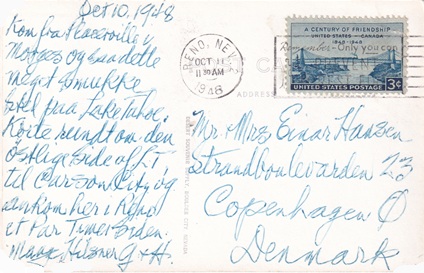 Oct 10, 1948
Kom fra Placerville i
Morges og saa dette
meget smukke
fra Lake Tahoe.
Körte rundt om den
östlige side af L.T
til Carson City og
ankom her i Reno
et Par Timer siden.
Mange Hilsner G + H.
RENO, NEV.
OCT 11
11 30 AM
1948
Remember - Only you can
A CENTURY OF FRIENDSHIP
UNITED STATES - CANADA
1848 - 1948
3¢
UNITED STATES POSTAGE
ADDRESS
Mr. + Mrs. Einar Hansen
Strandboulevarden 23
Copenhagen Ø
Denmark